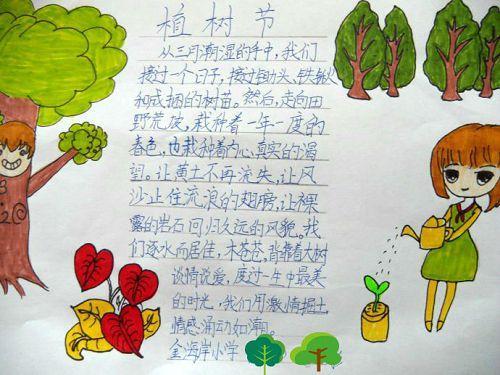 植树节
从三月潮湿的手中,我们
接过一个日子,接过锄头、铁锹
和成捆的树苗。然后,走向田
野荒坡,栽种着一年一度的
春色,也栽种着内心真实的渴
望。让黄土不再流失,让风
沙止住流浪的翅膀,让裸
露的岩石回归久远的风貌。我
们逐水而居住,木苍苍,背靠着大树
谈情说爱,度过一生中最美
的时光,我们用激情掘土
情感涌动如潮。
金海岸小学